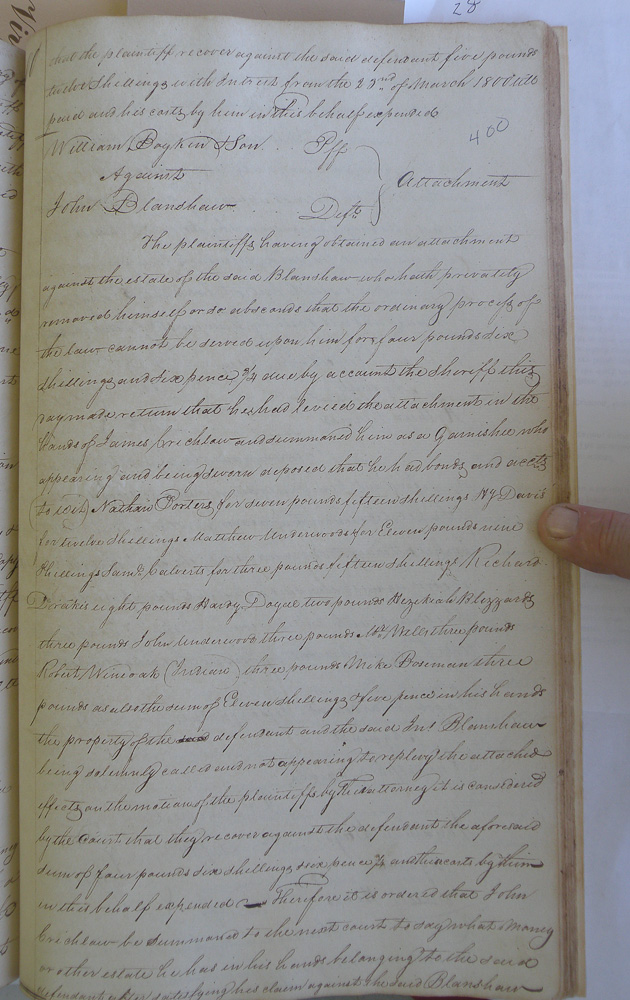 28
that the plaintiff recover against the said defendant five pounds
twelve Shillings with Interest from the 23rd of March 1800 till
paid and his costs by him in this behalf expended
400
William Boykin & Son . . Plff
Against
Attachment
John Blanshaw . . Deft.
The plaintiffs having obtained an attachment
against the estate of the said Blanshaw who hath privately
removed himself or so absconds that the ordinary process of
the law cannot be served upon him for four pounds six
shillings and six pence 3/4 due by account the sheriff this
day made return that he had levied the attachment in the
hands of James Crichlow and summoned him as a Garnishee who
appearing and being sworn deposed that he had bonds and accts
(to wit) Nathan Porters for seven pounds fifteen shillings Hy Davis'
for twelve shillings Matthew Underwoods for Eleven pounds nine
Shillings Saml. Calverts for three pounds fifteen shillings Richard
Drakes eight pounds Hardy Doyal two pounds Hezekiah Blizzards
three pounds John Underwood three pounds Wells three pounds
Robert Wineoak (Indian) three pounds Mike Boseman three
pounds as also the sum of Eleven shillings & five pence in his hands
the property of the defendant and the said Jno. Blanshaw
being solemnly called and not appearing to replevy the attached
effects on the motion of the plaintiffs by their attorney it is considered
by the court that they recover against the defendant the aforesaid
sum of four pounds six shillings & six pence 3/4 and their costs by them
in this behalf expended Therefore it is ordered that John
Crichlow be summoned to the next court to say what Money
or other estate he has in his hands belonging to the said
defendant after satisfying his claim against the said Blanshaw